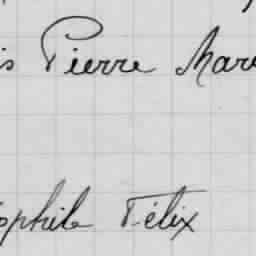 s Pierre Mar
ophile Félix